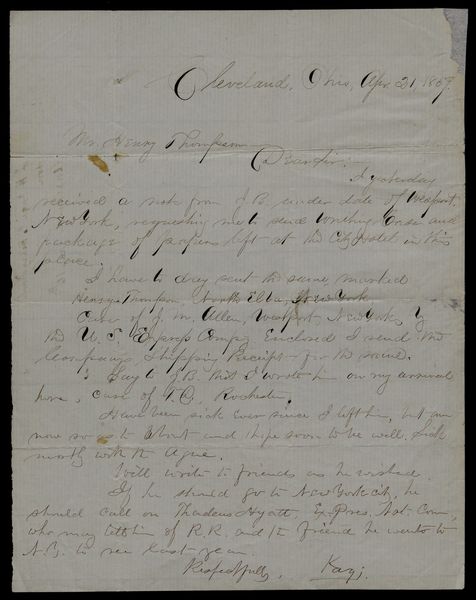 Cleveland, Ohio, Apr. 21, 1859.
Mr. Henry Thompson
Dear Sir:
I yesterday
received a note from J.B. under date of Westport,
New York, requesting me to send writing case and
package of papers left at the City Hotel in this
place.
I have to day sent the same, marked
Henry Thompson, North Elba, New York
Care of J. M. Allen, Westport, New York, by
the U. S. Express Compy. Enclosed I send the
Company's Shipping Receipt for the same.
Say to J.B. that I wrote him on my arrival
here, care of F.D., Rochester.
Have been sick ever since I left him, but am
now so as to be about and I hope soon to be well. Sick
mostly with the Ague.
Will write to friends as he wished.
If he should go to New York city, he
should call on Thadeus Hyatt, Ex. Pres. Nat. Com.
who may tell him of R.R. and the friend he went to
N.B. to see last year.
Respectfully, Kagi